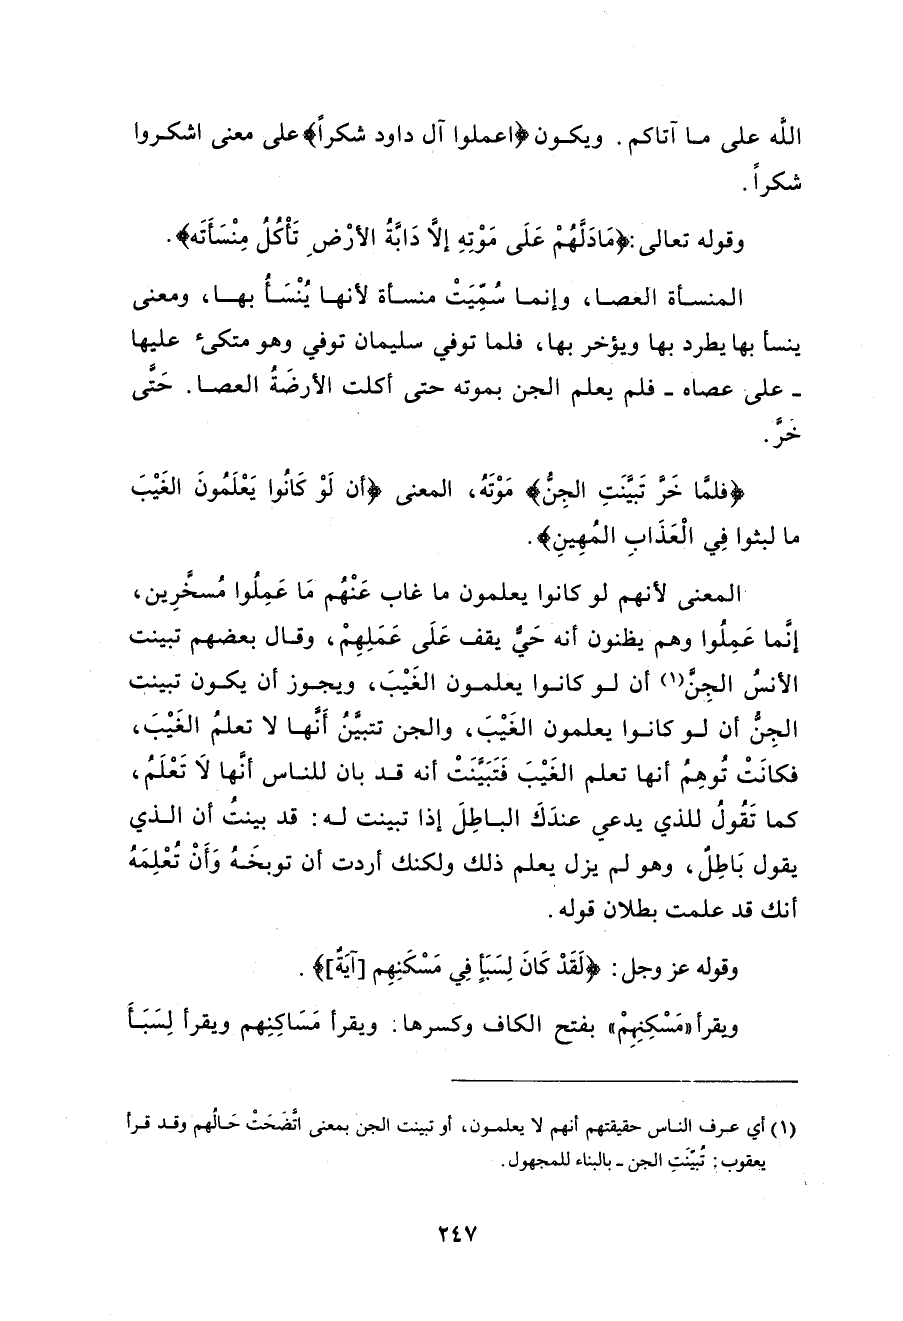 اللَّه على ما آتاكم. ويكون ﴿اعملوا آل داود شكراً﴾ على معنى اشكروا
شكراً.
وقوله تعالى: ﴿مَادَلَّهُمْ عَلَى مَوْتِهِ إلَّا دَابَّةُ الأرْضِ تَأْكُلُ مِنْسَأَتَه﴾.
المنسأة العصا، وإنما سُمِّيَتْ منسأة لأنها يُنْسَأُ بها، ومعنى
ينسأ بها يطرد بها ويؤخر بها، فلما توفي سليمان توفي وهو متكىء عليها
ـ على عصاه ـ فلم يعلم الجن بموته حتى أكلت الأرضَةُ العصا. حَتَّى
خَرَّ.
﴿فلمَّا خَرَّ تَبَيَّنَتِ الجِنُّ﴾ مَوْتَهُ، المعنى ﴿أن لَوْ كَانُوا يَعْلَمُونَ الغَيْبَ
ما لبثوا فِي الْعَذَابِ المُهِينِ﴾.
المعنى لأنهم لو كانوا يعلمون ما غاب عَنْهُم مَا عَمِلُوا مُسخَّرِين،
إنَّما عَمِلُوا وهم يظنون أنه حَيٌّ يقف عَلَى عَمَلِهِمْ، وقال بعضهم تبينت
الأنسُ الجِنَّ(١) أن لو كانوا يعلمون الغَيْبَ، ويجوز أن يكون تبينت
الجِنُّ أن لو كانوا يعلمون الغَيْبَ، والجن تتبيَّنُ أنَّها لا تعلمُ الغَيْبَ،
فكانَتْ تُوهِمُ أنها تعلم الغَيْبَ فَتَبَيَّنَتْ أنه قد بان للناس أنَّها لاَ تَعْلَمُ،
كما تَقُولُ للذي يدعي عندَكَ الباطِلَ إذا تبينت له: قد بينتُ أن الذي
يقول بَاطِلٌ، وهو لم يزل يعلم ذلك ولكنك أردت أن توبخَهُ وَأَنْ تُعْلِمَهُ
أنك قد علمت بطلان قوله.
وقوله عز وجل: ﴿لَقَدْ كَانَ لِسَبَأٍ فِي مَسْكَنِهِم [آيَةٌ]﴾.
ويقرأ «مَسْكِنِهِمْ» بفتح الكاف وكسرها: ويقرأ مَسَاكِنِهم ويقرأ لِسَبَأَ
(١) أي عرف الناس حقيقتهم أنهم لا يعلمون، أو تبينت الجن بمعنى اتَّضَحَتْ حَالُهم وقد قرأ
يعقوب: تُبُيِّنَتِ الجن ـ بالبناء للمجهول.
٢٤٧